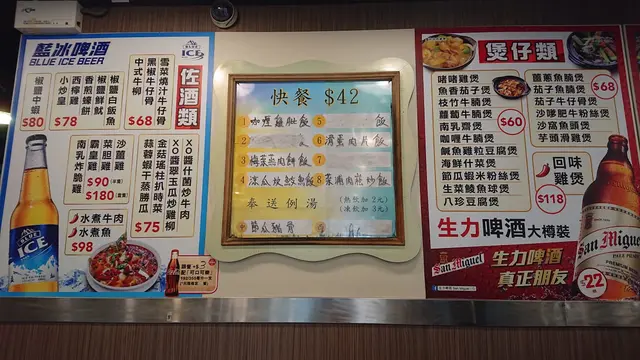 藍冰啤酒
BLUE ICE BEER
ICE
佐酒類
雪菜燒汁牛仔骨
黑椒牛仔骨
中式牛柳
$68
椒鹽白飯魚
椒鹽鮮魷
香煎蠔餅
西檸雞
小炒皇
$78
椒鹽中蝦
$80
XO醬什菌炒牛肉
XO醬翠玉瓜炒雞柳
金菇瑤柱扒時菜
蒜蓉蝦干蒸勝瓜
$75
沙薑雞
菜胆雞
霸皇雞
$90
$180
南乳炸脆雞
水煮牛肉
水煮魚
$98
ICE
快餐 $42
1 咖喱雞肶飯
5 飯
2
6 滑蛋肉片飯
3 梅菜蒸肉餅飯
7
4 涼瓜炆魚飯
8 菜脯肉崧炒飯
奉送例湯
(熱飲加2元)
(凍飲加3元)
煲仔類
啫啫雞煲
魚香茄子煲
枝竹牛腩煲
蘿蔔牛腩煲
南乳齋煲
咖喱牛腩煲
鹹魚雞粒豆腐煲
海鮮什菜煲
節瓜蝦米粉絲煲
生菜鯪魚球煲
八珍豆腐煲
$60
薑蔥魚腩煲
茄子魚腩煲
茄子牛仔骨煲
沙嗲肥牛粉絲煲
沙窩魚頭煲
芋頭滑雞煲
$68
回味雞煲
$118
生力啤酒大樽裝
San Miguel
生力啤酒
真正朋友
San Miguel
$22